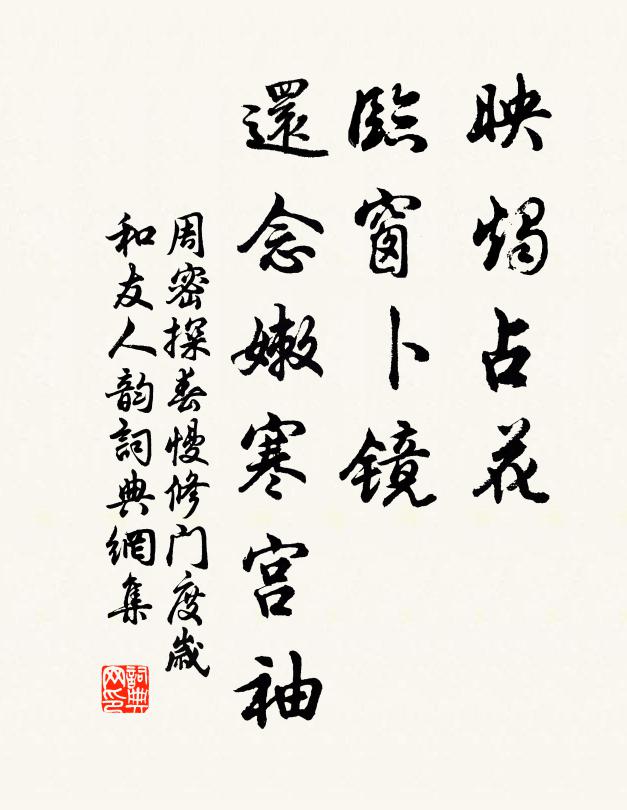 映燭占花
臨窗卜镜
還念嫩寒宫袖
周密探春慢修门度歲
和友人韵詞典網集
詞典网印